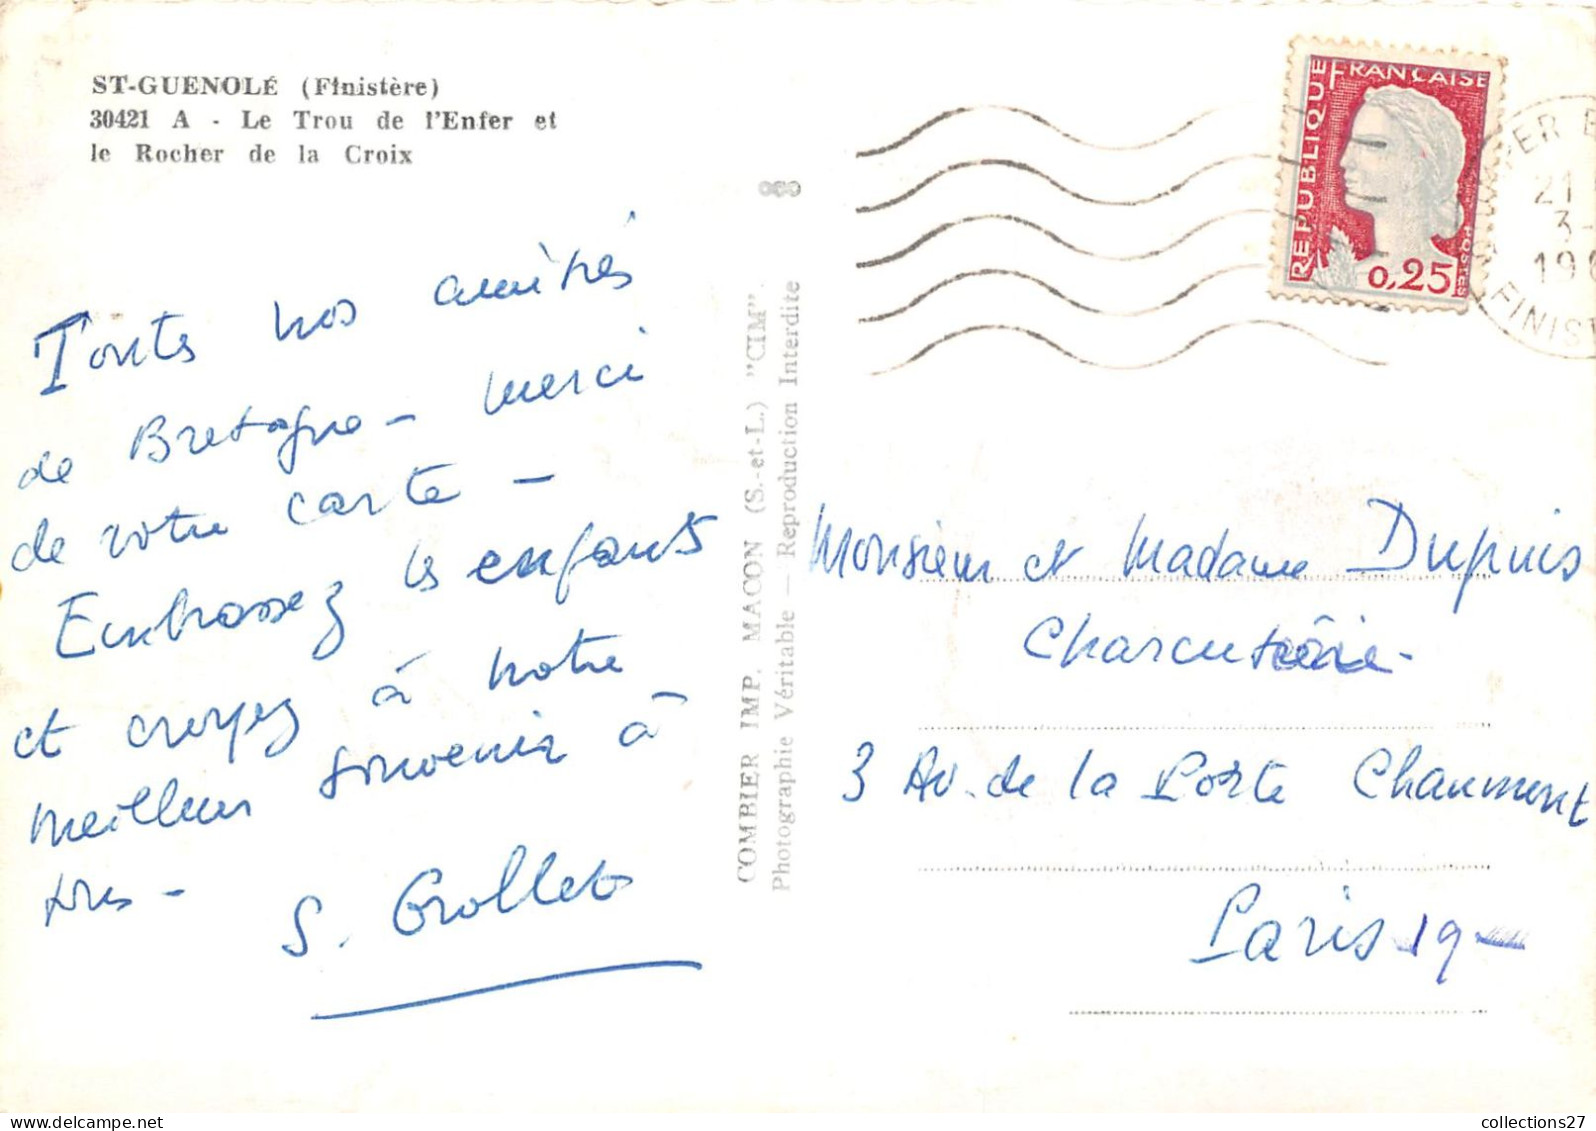 ST-GUENOLÉ (Finistère)
30421 A - Le Trou de l'Enfer et
le Rocher de la Croix
Toutes nos amitiés
de Bretagne - merci
de votre carte -
Embrassez les enfants
et croyez à notre
meilleur souvenir à
tous -
S. Grollets
COMBIER IMP. MACON (S.-et-L.) "CIM".
Photographie Véritable — Reproduction Interdite
REPUBLIQUE FRANÇAISE
POSTES
0,25
21
3-
FINIST
Monsieur et Madame Dupuis
Charcuterie-
3 Av. de la Porte Chaumont
Paris 19-
collections27